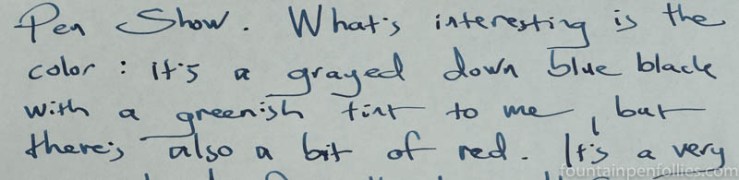 Pen Show. What's interesting is the
color : it's a grayed down blue black
with a greenish tint to me, but
there's also a bit of red. It's a very
fountainpenfollies.com